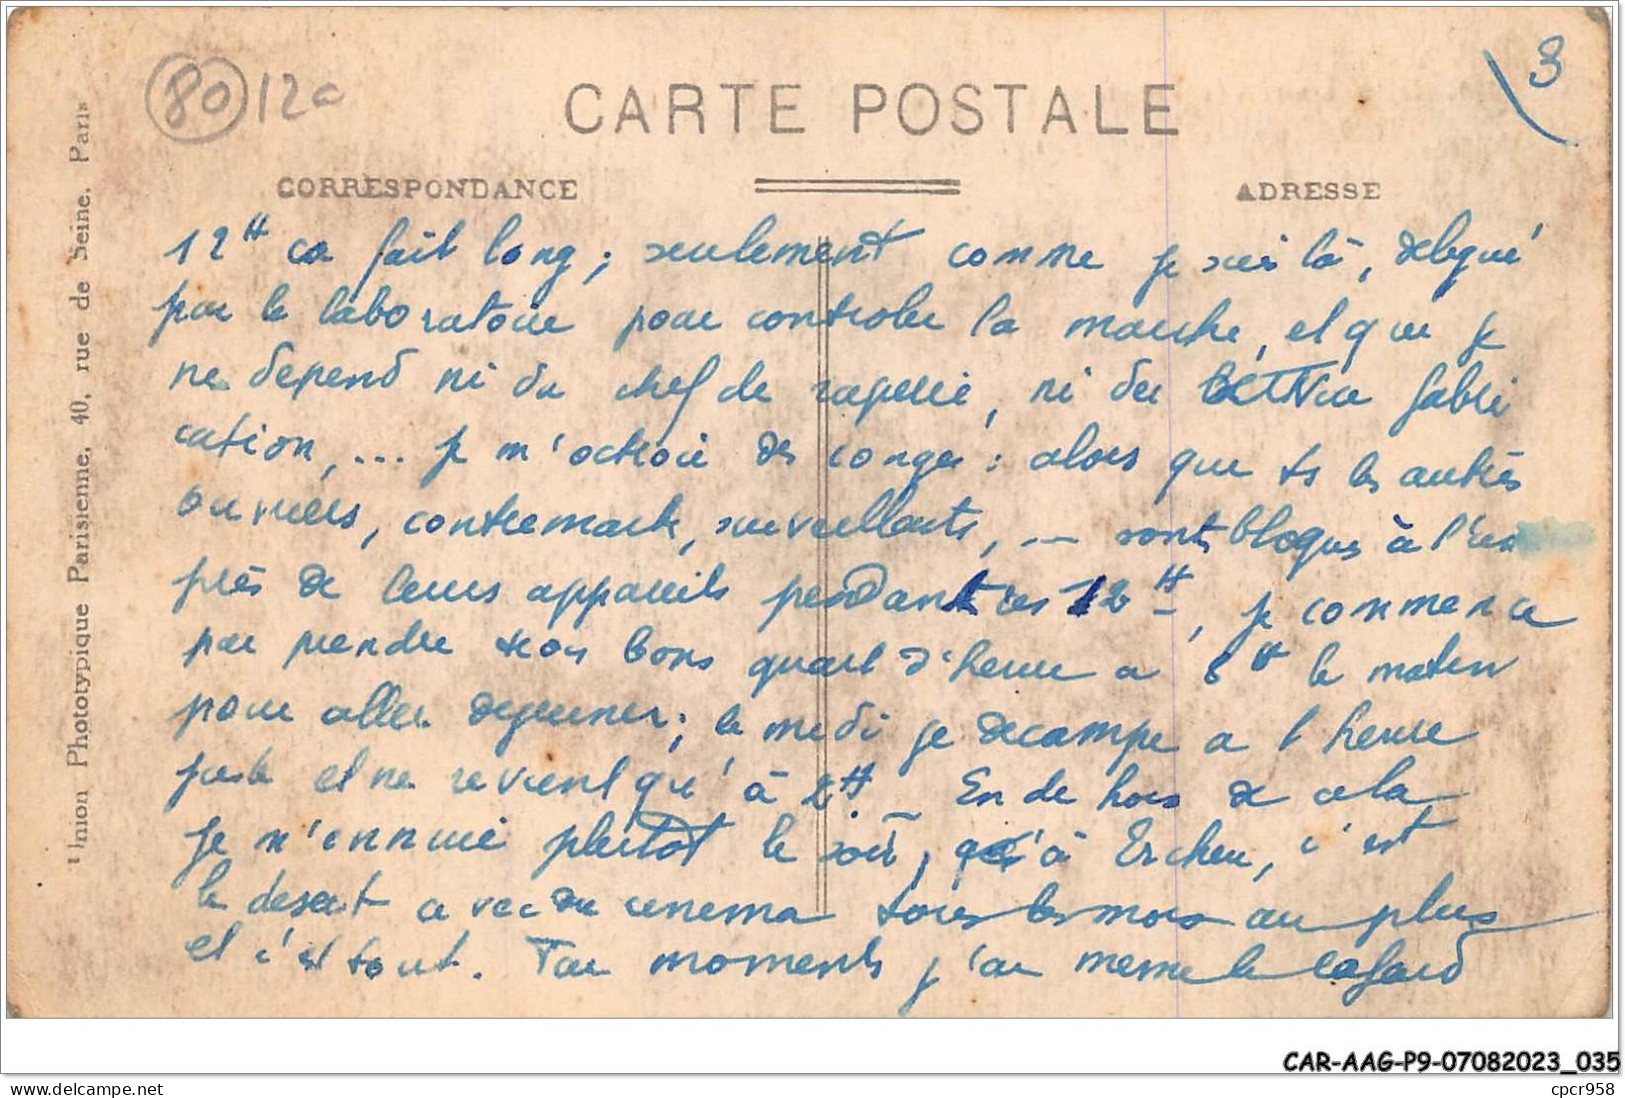 80 12c
3
CARTE POSTALE
CORRESPONDANCE
ADRESSE
Union Phototypique Parisienne, 40, rue de Seine, Paris
12H ca fait long ; seulement comme je suis là, delegué
par le laboratoire pour controler la marche, et que je
ne depend ni du chef de raperie, ni du fabri
cation, ... je m'octroie des conges : alors que ts les autres
ouvriers, contremait, surveillants, ... sont bloqués à l'us
près de leurs appareils pendant ces 12H, je commence
par prendre trois bons quart d'heure a 8H le matin
pour aller dejeuner ; le midi je decampe a l'heure
juste et ne revient qu'à 2H. En dehors de cela
je m'ennuie plutôt le soir, qu'à Ercheu, c'est
le desert avec du cinema tous les mois au plus
et c'est tout. Par moments j'ai meme le cafard
CAR-AAG-P9-07082023_035
www.delcampe.net
cpcr958